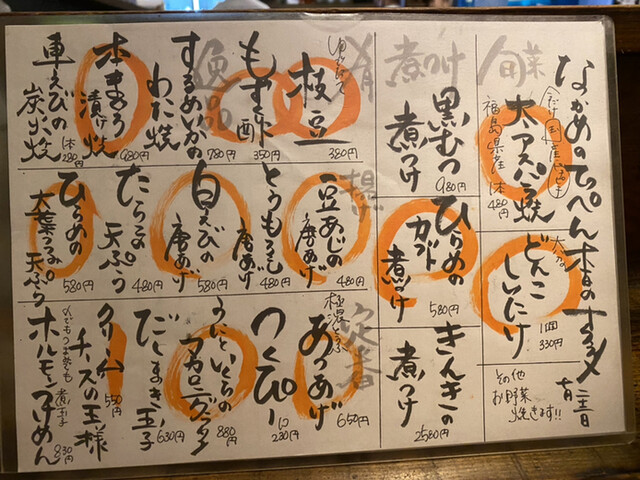 なかめのてっぺん本日のオススメ
十月二十二日
旬菜
大アスパラ焼
福島県産
1本
480円
どんこ
しいたけ
1個
330円
その他
お野菜
焼きます!!
煮つけ
黒むつ
煮つけ
980円
ひらめの
カブト
煮つけ
580円
きんきの
煮つけ
2580円
枝豆
380円
もずく酢
350円
逸品
するめいかの
わた焼
780円
本まぐろ
漬け焼
980円
車えびの
炭火焼
1本
280円
揚
豆あじの
唐あげ
480円
とうもろこし
唐あげ
480円
白えびの
唐あげ
580円
たらこの
天ぷら
480円
ひらめの
大葉つつみ
天ぷら
580円
定番
あつあげ
650円
つくぴー
230円
うにといくらの
マカロニグラタン
880円
だしまき玉子
630円
クリーム
チーズの王様
550円
ホルモンつけめん
830円